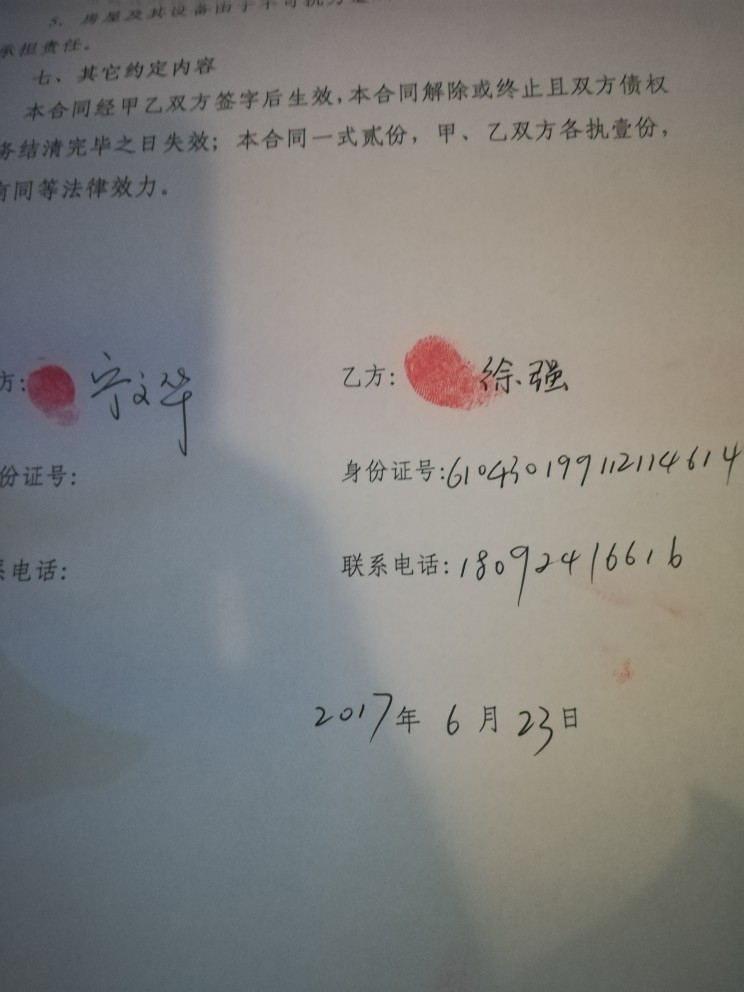 5. 房屋及其设备由于不可抗力造
承担责任。
七、其它约定内容
本合同经甲乙双方签字后生效,本合同解除或终止且双方债权
务结清完毕之日失效；本合同一式贰份，甲、乙双方各执壹份，
有同等法律效力。
方: 宁文华 乙方: 徐强
份证号: 身份证号:610430199112114614
系电话: 联系电话:18092416616
2017年 6 月 23日